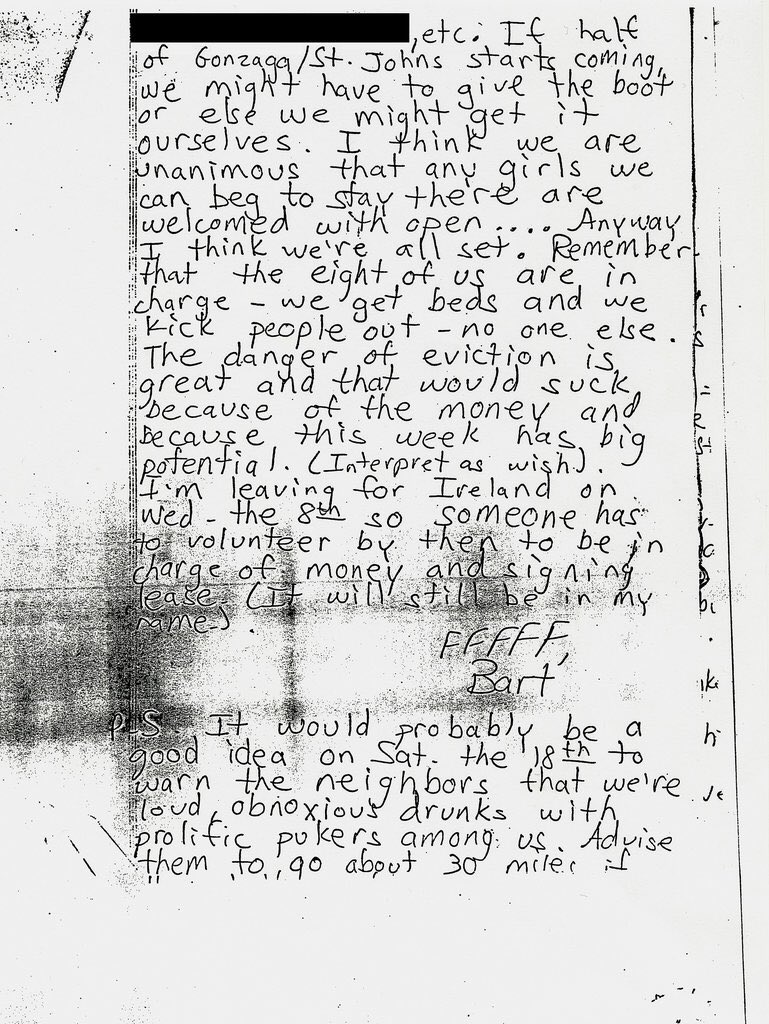 ,etc. If half
of Gonzaga/St. Johns starts coming,
we might have to give the boot
or else we might get it
ourselves. I think we are
unanimous that any girls we
can beg to stay there are
welcomed with open.... Anyway
I think we're all set. Remember
that the eight of us are in
charge - we get beds and we
kick people out - no one else.
The danger of eviction is
great and that would suck
because of the money and
because this week has big
potential. (Interpret as wish).
I'm leaving for Ireland on
Wed. the 8th so someone has
to volunteer by then to be in
charge of money and signing
lease. (It will still be in my
name.)
FFFFF,
Bart
P.S. It would probably be a
good idea on Sat. the 18th to
warn the neighbors that we're
loud, obnoxious drunks with
prolific pukers among us. Advise
them to go about 30 miles if